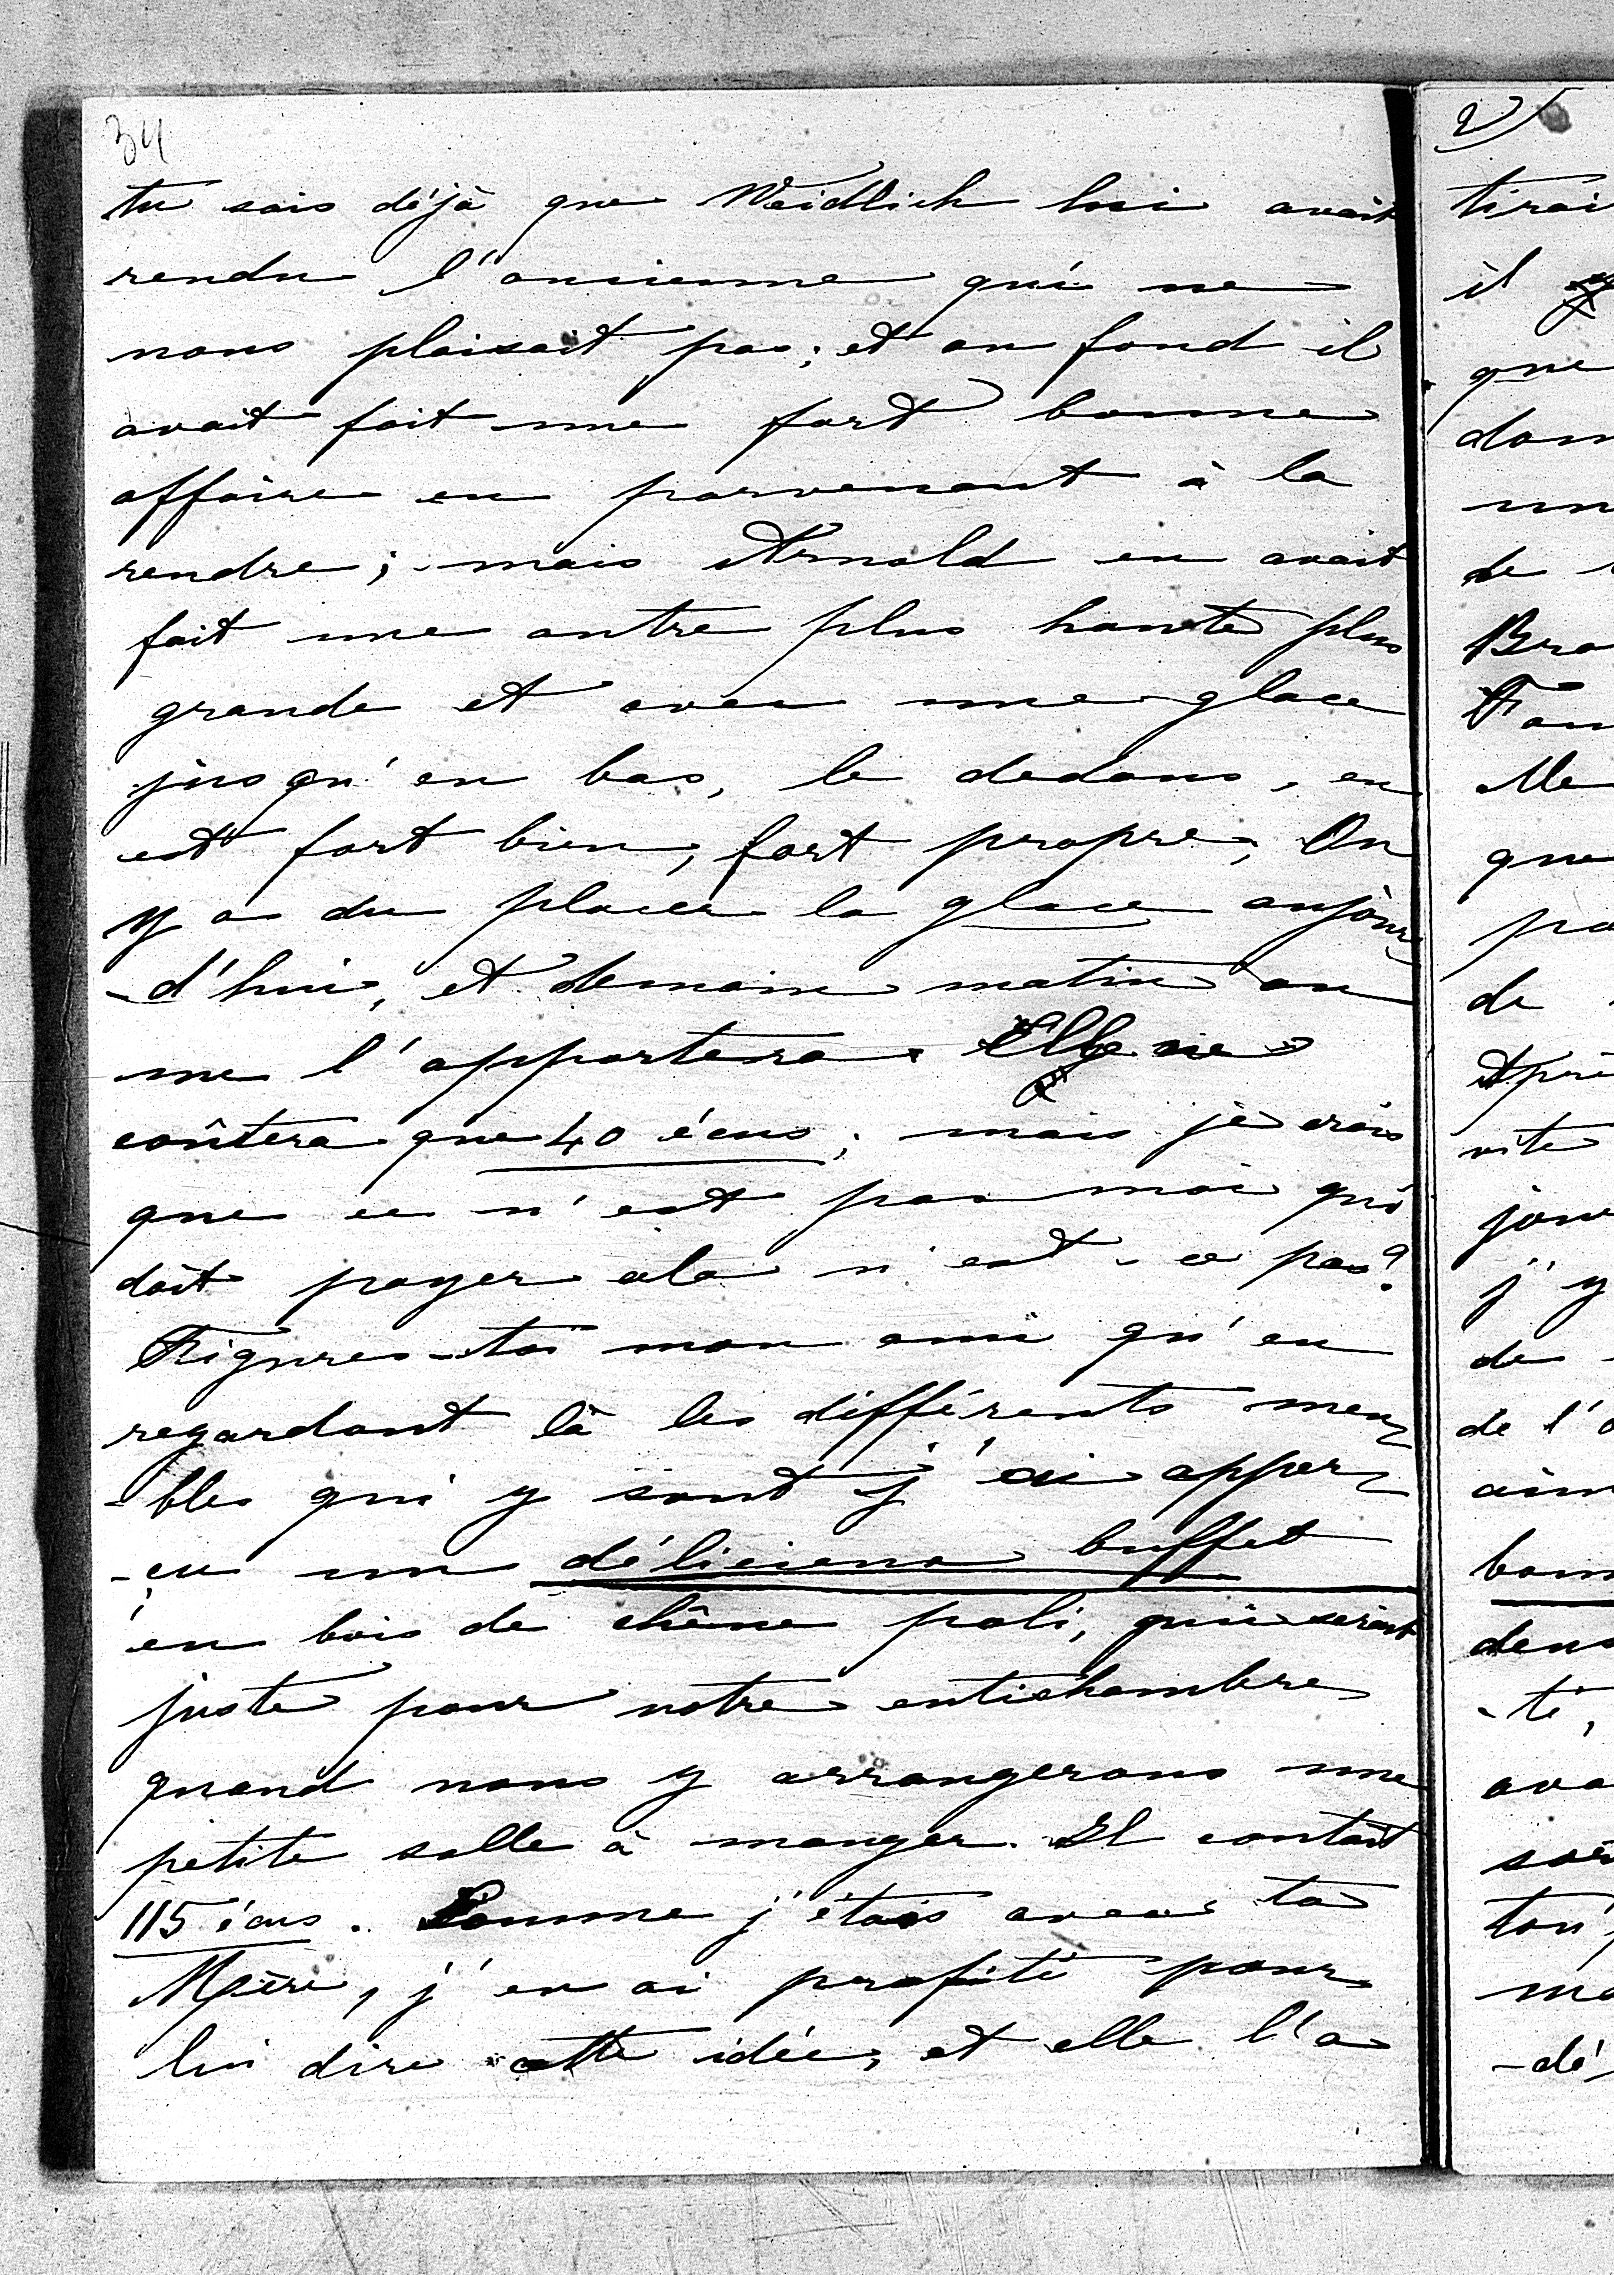 34
tu sais déjà que Weidlich lui avait
rendu l'ancienne qui ne
nous plaisait pas; et au fond il
avait fait une fort bonne
affaire en parvenant à la
rendre; mais Arnold en avait
fait une autre plus haute plus
grande et avec une glace
jusqu'en bas, le dedans, en
est fort bien, fort propre; On
y a du placer la glace aujour
-d'hui, et demain matin on
me l'apportera. Elle ne
coûtera que 40 écus; mais je crois
que ce n'est pas moi qui
doit payer cela n'est-ce pas?
Figures-toi mon ami qu'en
regardant là les différents meu
-bles qui y sont j'ai apper
-çu un délicieux buffet
en bois de chêne poli, qui serait
juste pour notre antichambre
quand nous y arrangerons une
petite salle à manger. Il coutait
115 écus. Comme j'étais avec ta
Mère, j'en ai profité pour
lui dire cette idée, et elle l'a
2)
tirai
il
que
don
un
de
Bra
Fan
Me
que
pa
de
Aprè
vite
jour
j'y
de
de l'a
aim
bon
deux
-té,
ava
soi
ton
ma
-dé